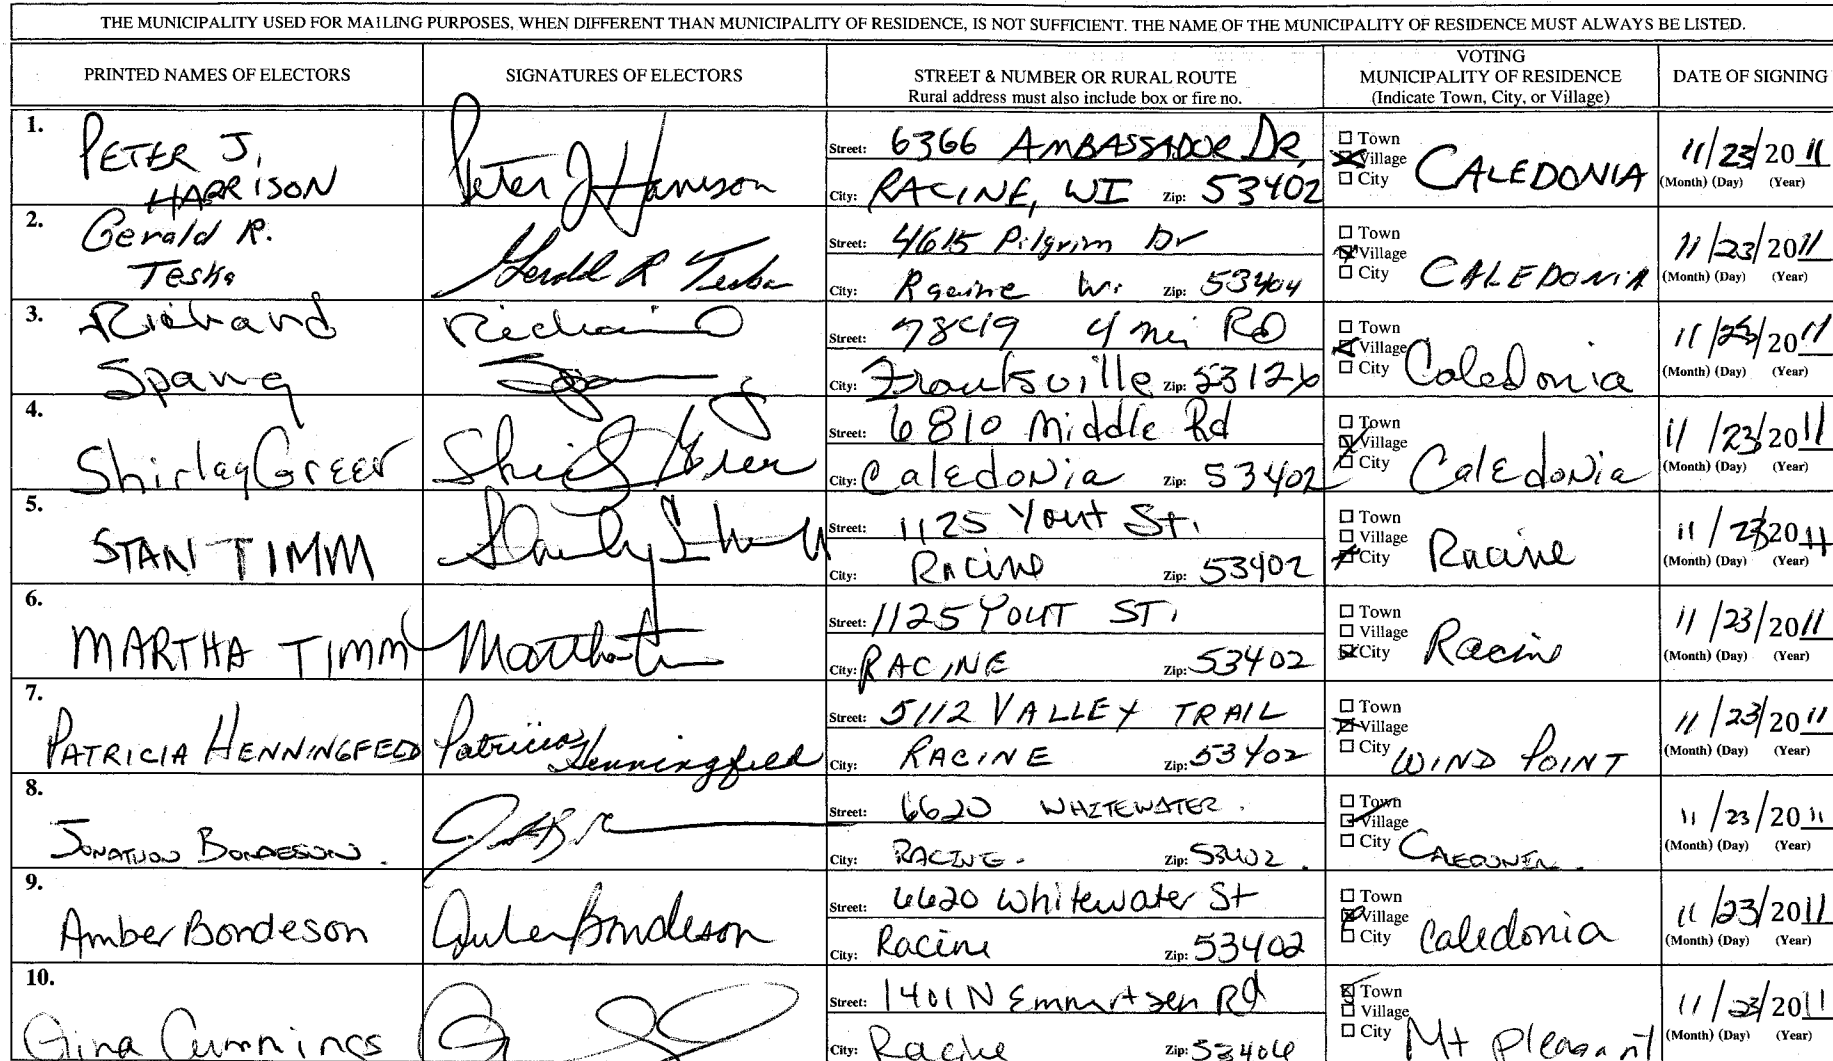 THE MUNICIPALITY USED FOR MAILING PURPOSES, WHEN DIFFERENT THAN MUNICIPALITY OF RESIDENCE, IS NOT SUFFICIENT. THE NAME OF THE MUNICIPALITY OF RESIDENCE MUST ALWAYS BE LISTED.
PRINTED NAMES OF ELECTORS
SIGNATURES OF ELECTORS
STREET & NUMBER OR RURAL ROUTE
Rural address must also include box or fire no.
VOTING
MUNICIPALITY OF RESIDENCE
(Indicate Town, City, or Village)
DATE OF SIGNING
1.
PETER J.
HARRISON
Peter J Harrison
Street: 6366 AMBASSADOR DR.
City: RACINE, WI Zip: 53402
Town
Village
City
CALEDONIA
11/23/2011
(Month) (Day) (Year)
2.
Gerald R.
Teska
Gerald R Teska
Street: 4615 Pilgrim Dr
City: Racine Wi Zip: 53404
Town
Village
City
CALEDONIA
11/23/2011
(Month) (Day) (Year)
3.
Richard
Spang
Richard
Street: 7849 4 mi RD
City: Franksville Zip: 53126
Town
Village
City
Caledonia
11/23/2011
(Month) (Day) (Year)
4.
Shirley Greer
Shirley Greer
Street: 6810 Middle Rd
City: Caledonia Zip: 53402
Town
Village
City
Caledonia
11/23/2011
(Month) (Day) (Year)
5.
STAN TIMM
Street: 1125 Yout St.
City: Racine Zip: 53402
Town
Village
City
Racine
11/23/2011
(Month) (Day) (Year)
6.
MARTHA TIMM
Martha
Street: 1125 YOUT ST.
City: RACINE Zip: 53402
Town
Village
City
Racine
11/23/2011
(Month) (Day) (Year)
7.
PATRICIA HENNINGFELD
Patricia Henningfeld
Street: 5112 VALLEY TRAIL
City: RACINE Zip: 53402
Town
Village
City
WIND POINT
11/23/2011
(Month) (Day) (Year)
8.
JONATHON BONDESON.
Street: 6620 WHITEWATER.
City: RACINE. Zip: 53402.
Town
Village
City
CALEDONIA.
11/23/2011
(Month) (Day) (Year)
9.
Amber Bondeson
Amber Bondeson
Street: 6620 Whitewater St
City: Racine Zip: 53402
Town
Village
City
Caledonia
11/23/2011
(Month) (Day) (Year)
10.
Gina Cummings
Street: 1401 N Emmertsen Rd
City: Racine Zip: 53406
Town
Village
City
Mt Pleasant
11/23/2011
(Month) (Day) (Year)